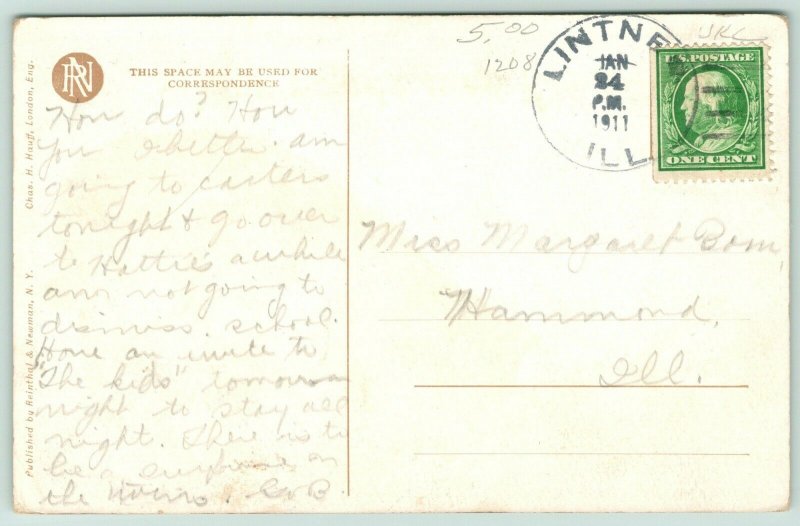 5.00
1208
JKC
LINTNER
JAN
24
P.M.
1911
ILL.
U.S. POSTAGE
ONE CENT
RN
THIS SPACE MAY BE USED FOR
CORRESPONDENCE
Chas. H. Hauff, London, Eng.
Published by Reinthal & Newman, N. Y.
How do? How
you better am
going to Casters
tonight & go over
to Hattie's awhile
am not going to
dismiss school.
Have an invite to
"The kids" tomorrow
night to stay all
night. There is to
be a surprise on
the
Miss Margaret Bom,
Hammond,
Ill.